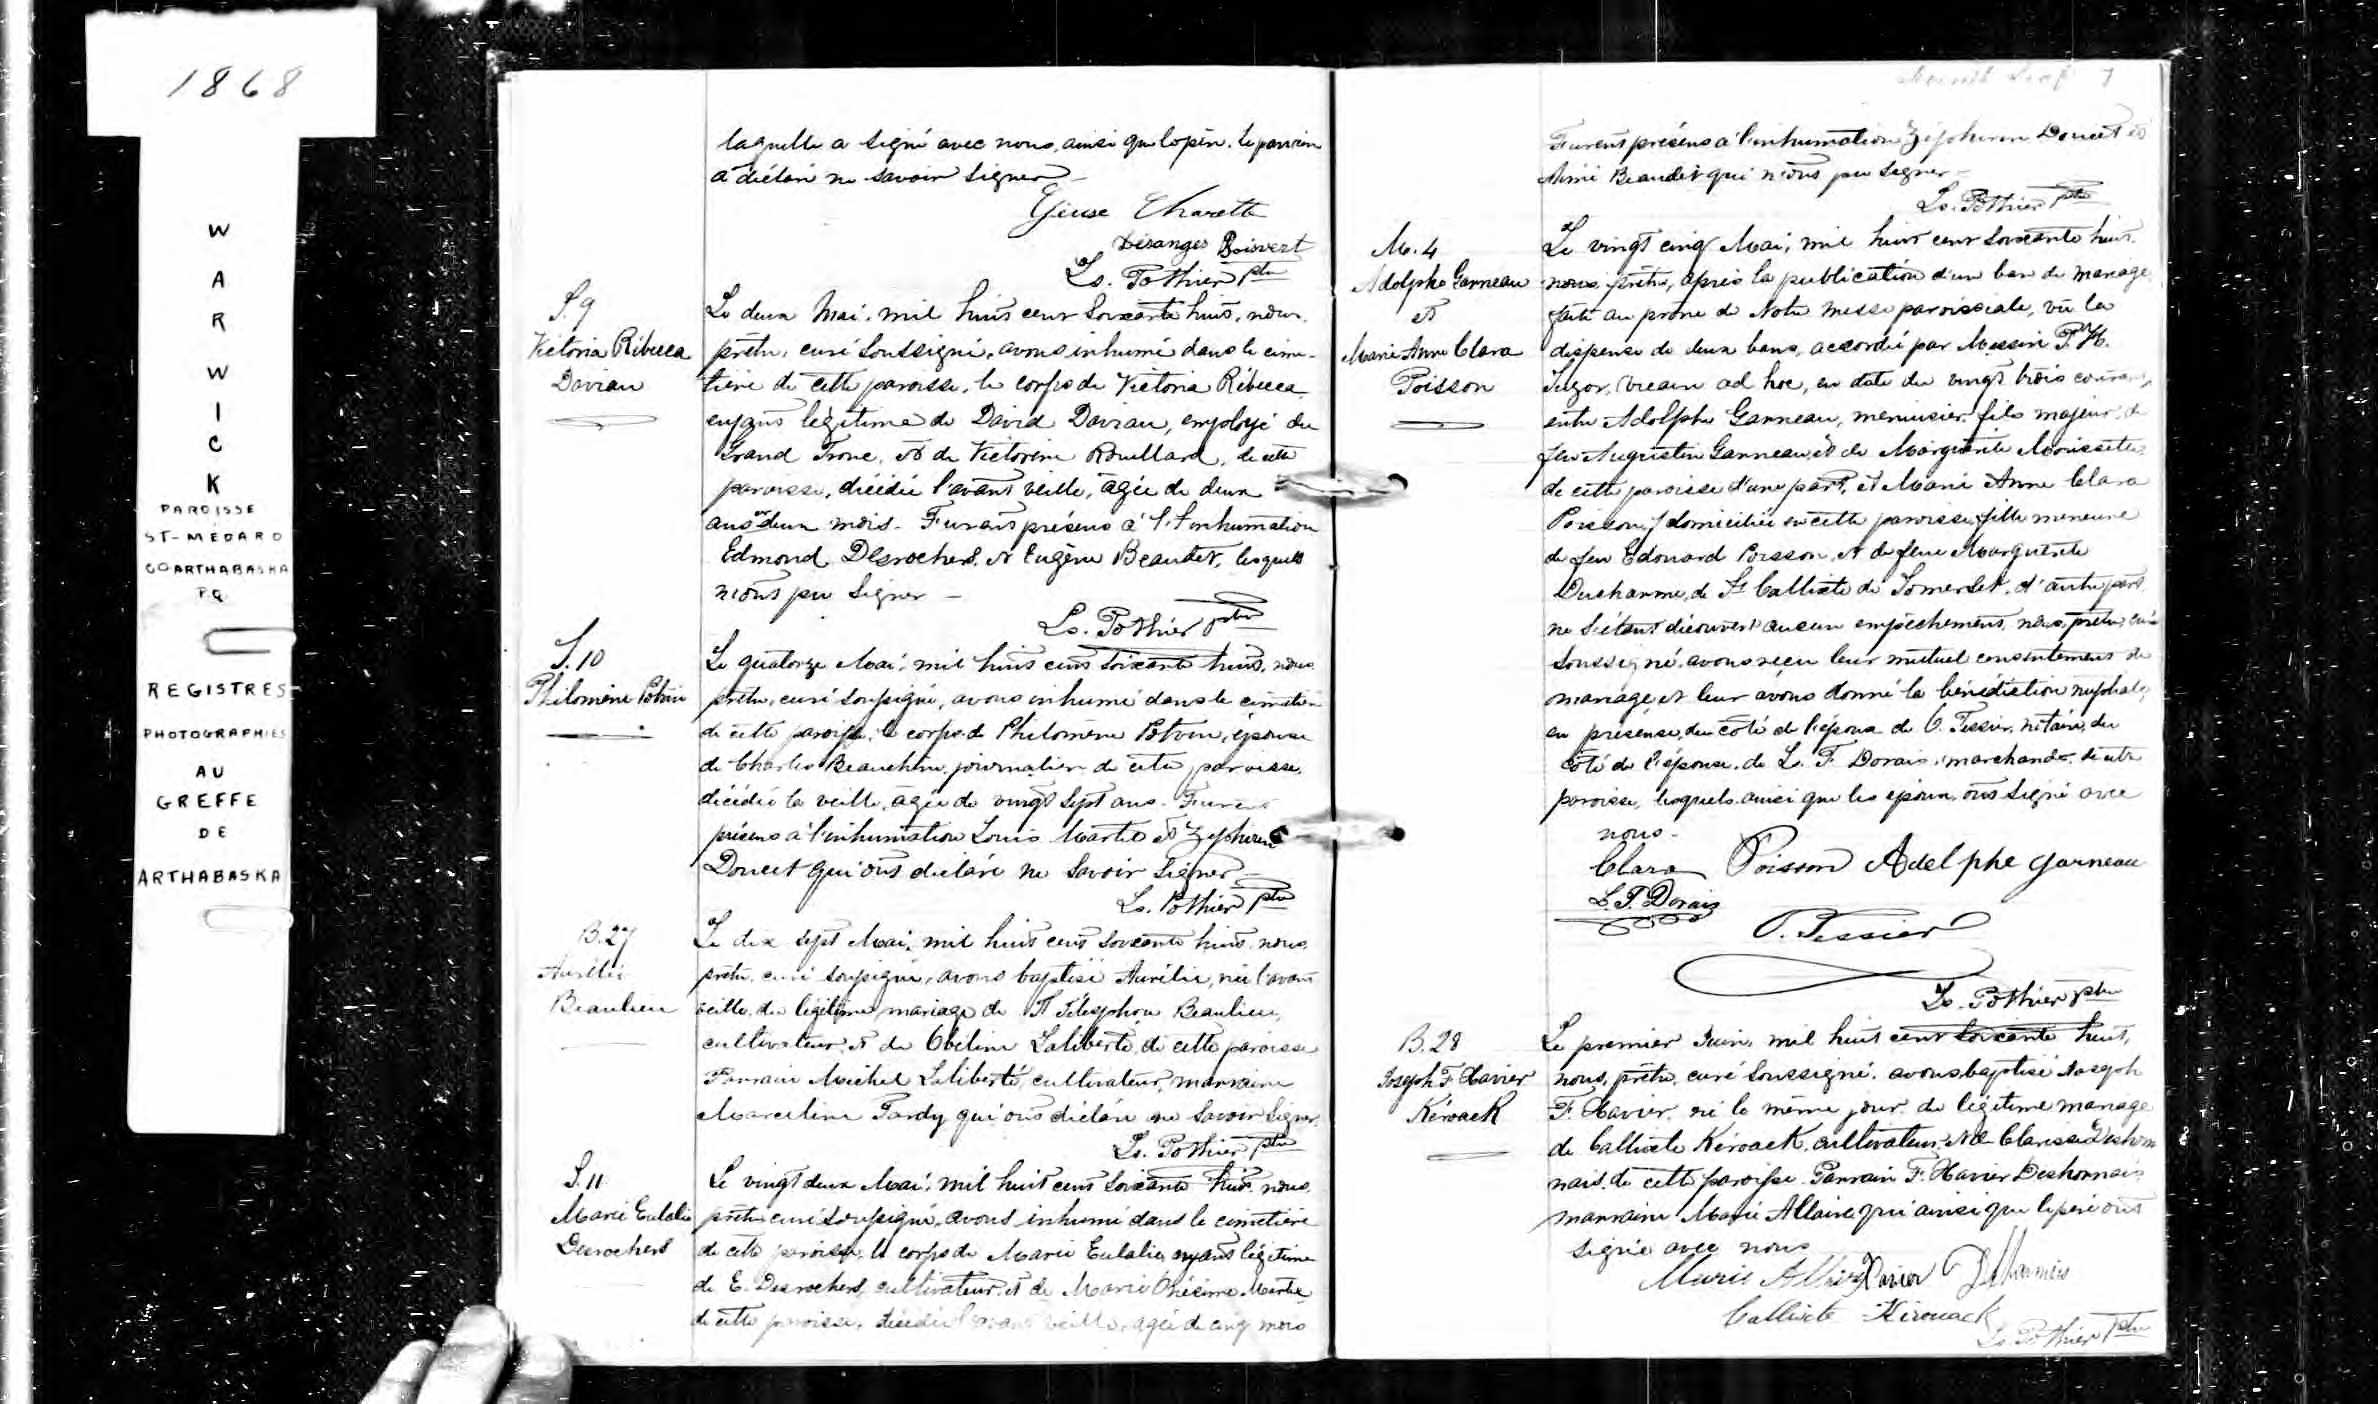 1868
WARWICK
PAROISSE
ST-MÉDARD
CO ARTHABASKA
P.Q.
REGISTRES
PHOTOGRAPHIÉS
AU
GREFFE
DE
ARTHABASKA
laquelle a signé avec nous, ainsi que le père. le parrain
a déclaré ne savoir signer
Charette
Désanges Boisvert
Ls. Pothier ptre
S. 9
Victoria Rébecca
Davian
Le deux Mai, mil huit cent soixante huit, nous
prêtre, curé soussigné, avons inhumé dans le cime-
tière de cette paroisse, le corps de Victoria Rébecca
enfant légitime de David Davian, employé du
Grand Tronc, et de Victorine Rouillard, de cette
paroisse, décédée l'avant veille, âgée de deux
ans et deux mois. Furent présens à l'inhumation
Edmond Desrochers et Eugène Beaudet, lesquels
n'ont pu signer
Ls. Pothier ptre
S. 10
Philomène Potvin
Le quatorze Mai, mil huit cent soixante huit, nous
prêtre, curé soussigné, avons inhumé dans le cimetière
de cette paroisse, le corps de Philomène Potvin, épouse
de Charles Beauchêne, journalier de cette paroisse,
décédée la veille, âgée de vingt sept ans. Furent
présens à l'inhumation Louis Martel et Zéphirin
Doucet qui ont déclaré ne savoir signer
Ls. Pothier ptre
B. 27
Aurélie
Beaulieu
Le dix sept Mai, mil huit cent soixante huit, nous
prêtre, curé soussigné, avons baptisé Aurélie, née l'avant
veille, du légitime mariage de Télesphore Beaulieu,
cultivateur, et de Obéline Laliberté, de cette paroisse
Parrain Michel Laliberté, cultivateur, marraine
Marceline Tardy qui ont déclaré ne savoir signer.
Ls. Pothier ptre
S. 11
Marie Eulalie
Desrochers
Le vingt deux Mai, mil huit cent soixante huit, nous
prêtre curé soussigné, avons inhumé dans le cimetière
de cette paroisse, le corps de Marie Eulalie, enfant légitime
de E. Desrochers, cultivateur, et de Marie Onésime Martel
de cette paroisse, décédée l'avant veille, âgée de cinq mois
7
Furent présens à l'inhumation Zéphirin Doucet et
Aimé Beaudet qui n'ont pu signer
Ls. Pothier ptre
M. 4
Adolphe Garneau
et
Marie Anne Clara
Poisson
Le vingt cinq Mai, mil huit cent soixante huit,
nous, prêtre, après la publication d'un ban de mariage
faite au prône de Notre messe paroissiale, vu la
dispense de deux bans, accordée par Messire P. H.
Suzor, vicaire ad hoc, en date du vingt trois courant,
entre Adolphe Garneau, menuisier, fils majeur de
feu Augustin Garneau, et de Marguerite Morissette,
de cette paroisse d'une part, et Marie Anne Clara
Poisson, domiciliée en cette paroisse, fille mineure
de feu Edouard Poisson, et de feue Marguerite
Ducharme, de St Callixte de Somerset, d'autre part,
ne s'étant découvert aucun empêchement, nous, prêtre, curé
soussigné, avons reçu leur mutuel consentement de
mariage et leur avons donné la bénédiction nuptiale,
en présence, du côté de l'époux de O. Tessier, notaire, du
côté de l'épouse, de L. F. Dorais, marchand, de cette
paroisse, lesquels ainsi que les époux, ont signé avec
nous.
Clara Poisson Adelphe Garneau
L. F. Dorais
O. Tessier
Ls. Pothier ptre
B. 28
Joseph F. Xavier
Kéroack
Le premier Juin, mil huit cent soixante huit,
nous, prêtre, curé soussigné, avons baptisé Joseph
F. Xavier, né le même jour, du légitime mariage
de Callixte Kéroack, cultivateur, et de Clarisse Deshar
nais, de cette paroisse. Parrain F. Xavier Desharnais
marraine Marie Allaire qui ainsi que le père ont
signé avec nous
Marie Allaire Xavier Desharnais
Callixte Kérouack
Ls. Pothier Ptre